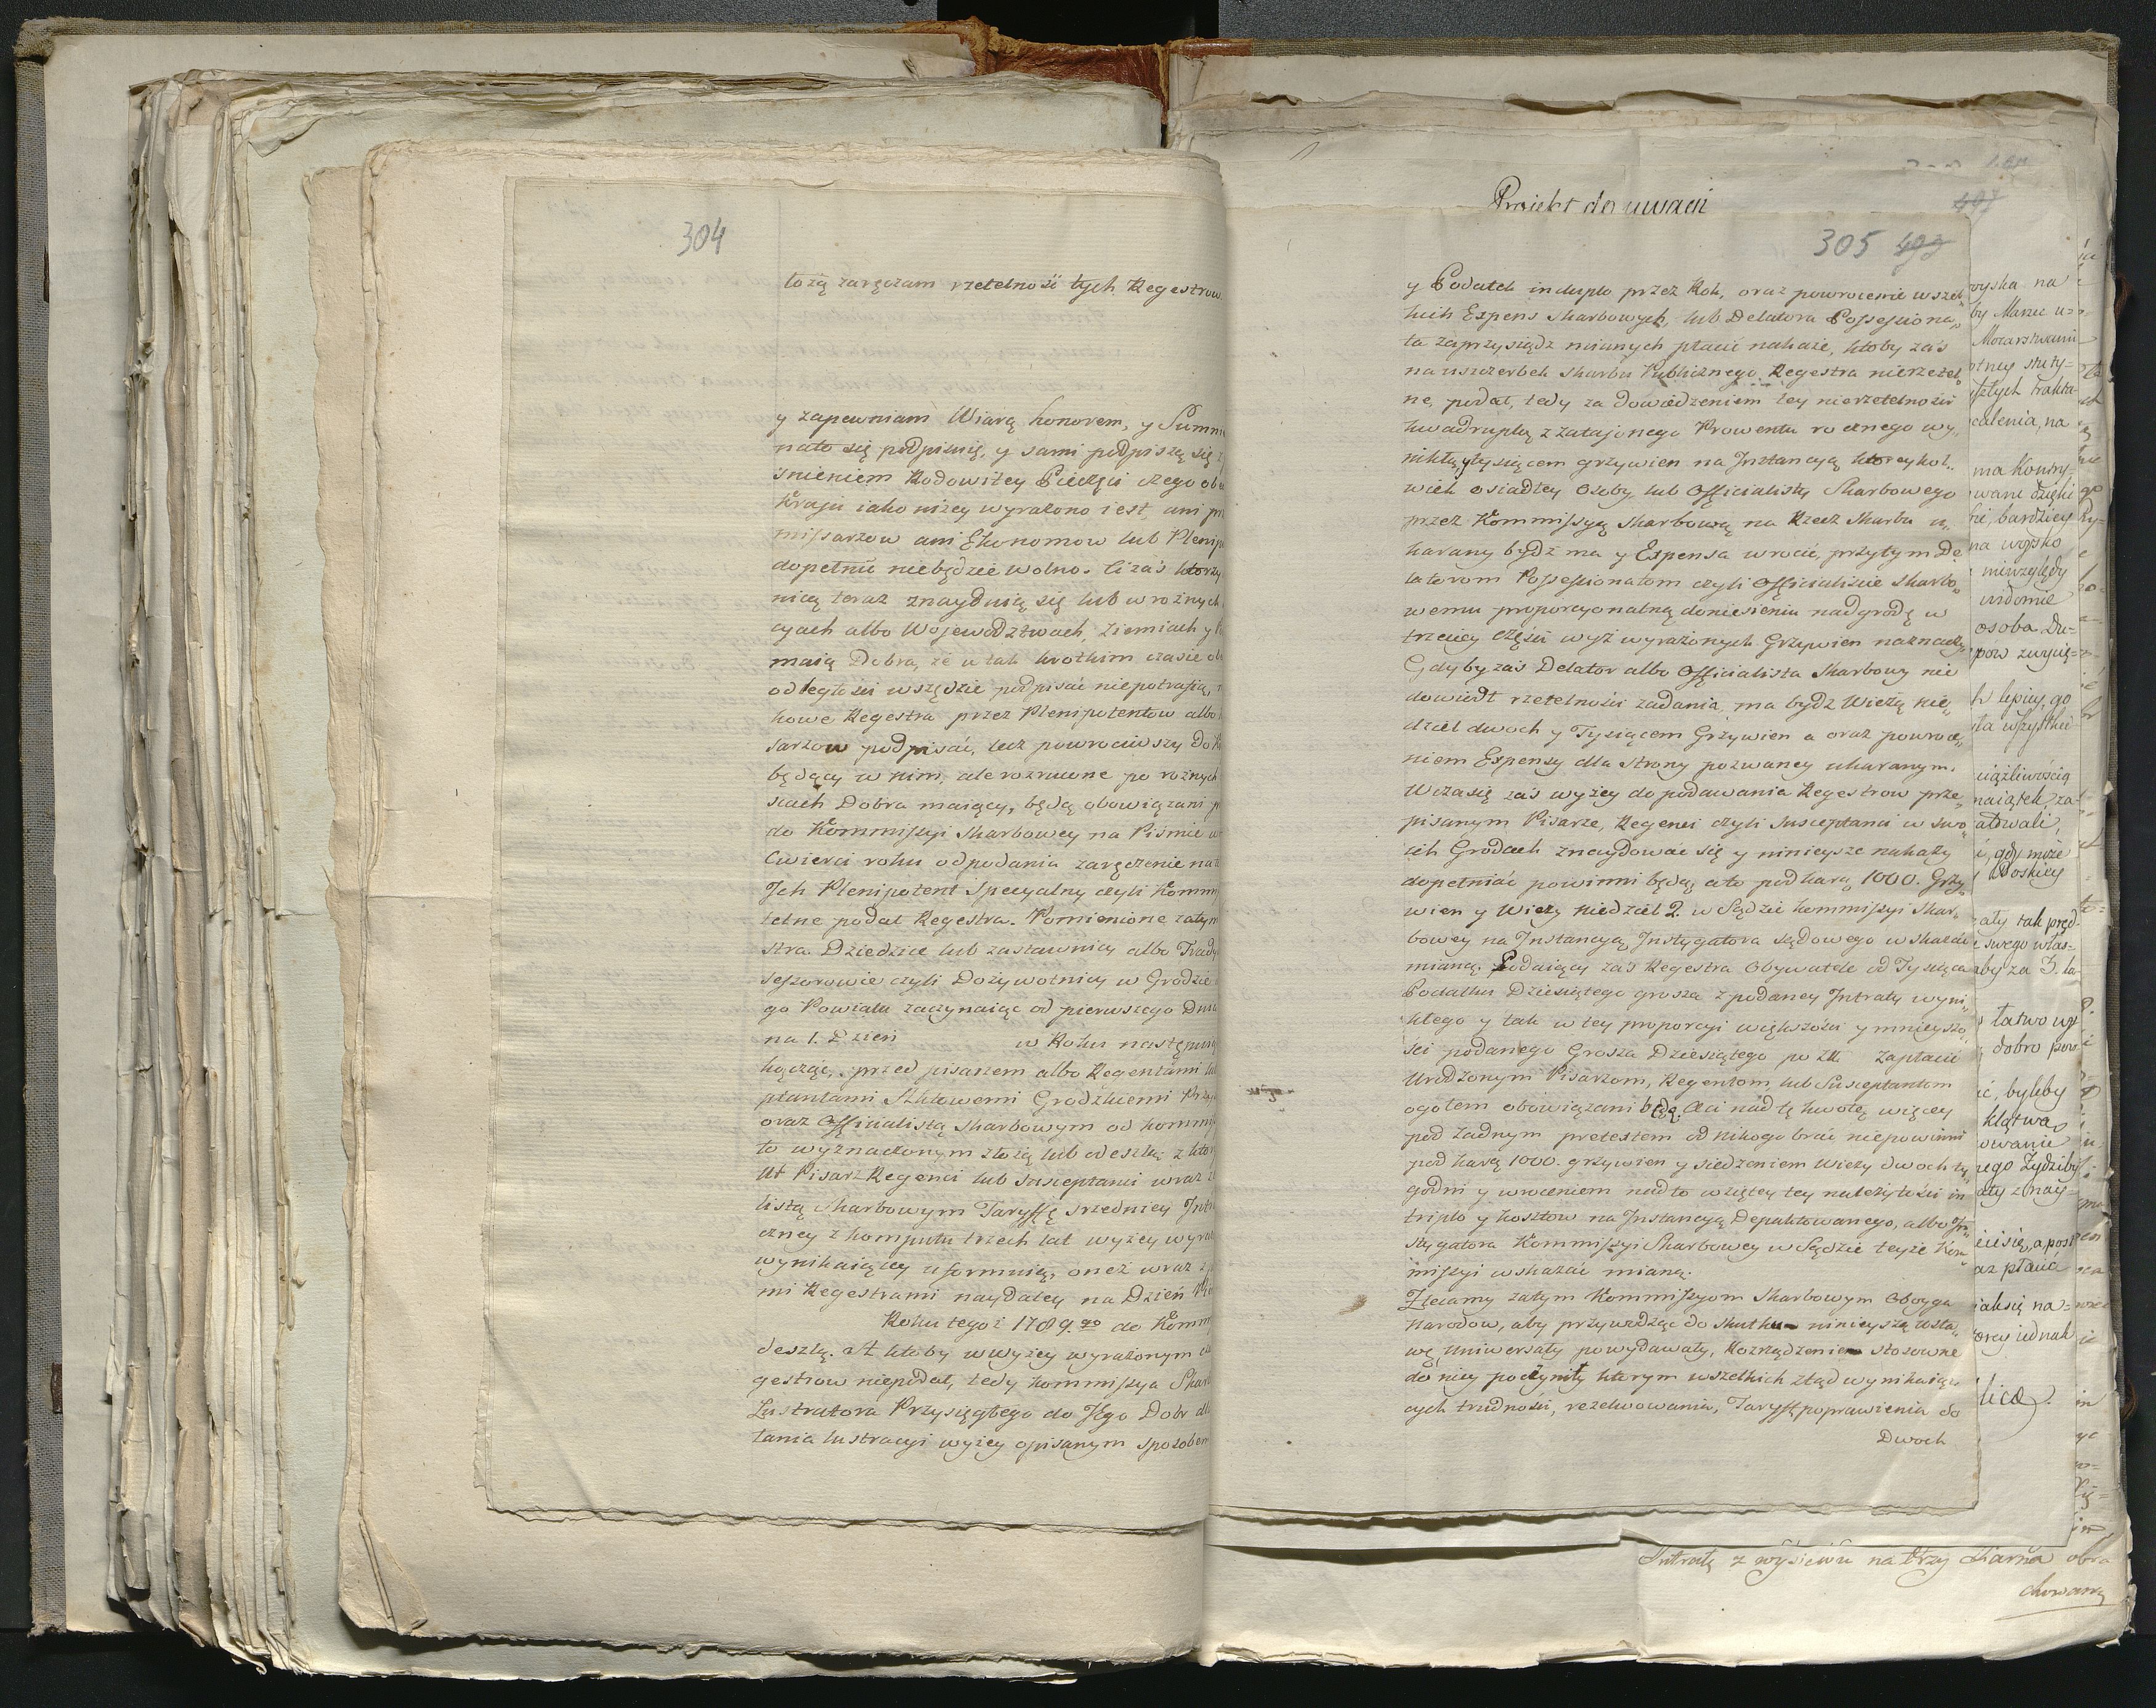 304
tożą zaręczam rzetelność tych Regestrow
y zapewniam Wiarą honorem, y Summ
nato się podpisuię, y sami podpiszą się z
śnieniem Rodowitey Pieczęci czego ob
Kraju iako niżey wyrażono iest, ani pr
missarzow ani Ekonomow lub Plenip
dopełnić niebędzie wolno. Ci zaś ktorzy
nicą teraz znayduią się lub w rożnych
cyach albo Wojewodztwach, Ziemiach y
maią Dobra, że w tak krotkim czasie
odległości wszędzie podpisać niepotrafią,
kowe Regestra przez Plenipotentow albo
sarzow podpisać, lecz powrociwszy do K
będący w nim, ale rozrucone po rożnych
scach Dobra maiący, będą obowiązani p
do Kommissyi Skarbowey na Pismie w
Cwierci roku od podania zaręczenie na
Jch Plenipotent Specyalny czyli Komm
telne podał Regestra. Pomienione zatym
stra Dziedzice lub zastawnicy albo Trady
sessorowie czyli Dożywotnicy w Grodzie
go Powiatu zaczynaiąc od pierwszego Dnia
na 1. Dzień w Roku następu
kącząc, przed pisarzem albo Regentami lub
ptantami Aktowemi Grodzkiemi Przy
oraz Officialistą Skarbowym od kommi
to wyznaczonym złożą lub odeszlą z ktor
Ut Pisarz Regenci lub Susceptanci wraz z
listą Skarbowym Taryffę srzedniey Intr
czney z komputu trzech lat wyżey wyra
wynikaiącey uformuią, oneż wraz z
mi Regestrami naydaley na Dzień
Roku tegoż 1789.go do Komm
deszlą. A ktoby wwyżey wyrażonym
gestrow niepodał, tedy kommissya Skar
Lustratora Przysięgłego do Jego Dobr dla
łania lustracyi wyżey opisanym sposobem
Projekt do uwagi
305 403
y Podatek induplo przez Rok, oraz powrocenie wszel„
kich Expens skarbowych, lub Delatora Possessiona„
ta zaprzysiądz mianych płacić nakaże, ktoby zaś
na uszczerbek skarbu Publicznego Regestra nierzetel„
ne, podał, tedy za dowiedzeniem tey nierzetelności
kwadruplą z zatajonego Prowentu rocznego wy„
nikłą y tysiącem grzywien na Jnstancyą ktoreykol„
wiek osiadłey Osoby lub Officialisty Skarbowego
przez Kommissyą Skarbową na Rzecz skarbu u„
karany bydź ma y Expensa wroci, przytym De„
latorom Possessionatom czyli Officialiście Skarbo„
wemu proporcyonalną doniesieniu nadgrodę w
trzeciey części wyż wyrażonych Grzywien naznaczy
Gdyby zaś Delator albo Officialista Skarbowy nie
dowiodł rzetelności zadania, ma bydz Wieżą nie„
dziel dwoch y Tysiącem Grzywien a oraz powroce„
niem Expensy dla Strony pozwaney ukaranym.
Wczasię zaś wyżey do podawania Regestrow prze„
pisanym Pisarze, Regenci czyli Susceptanci w swo„
ich Grodach znaydować się y ninieysze nakazy
dopełniać powinni będą, a to pod karą 1000. Grzy„
wien y Wieży Niedziel 2. w Sądzie kommissyi Skar„
bowey na Jnstancyą Jnstygatora sądowego wskazać
mianą. Podaiący zaś Regestra Obywatele od Tysiąca
Podatku Dziesiątego grosza z podaney Jntraty wyni„
kłego y tak w tey proporcyi większości y mnieyszo„
ści podanego Grosza Dziesiątego po zlł. zapłacić
Urodzonym Pisarzom, Regentom, lub Susceptantom
ogołem obowiązani będą. Aci nad tę kwotę więcey
pod żadnym pretextem od nikogo brać niepowinni
pod karą 1000. grzywien y siedzeniem Wieży dwoch ty„
godni y wroceniem nadto wziętey tey należytości in
triplo y kosztow na Jnstancyą Depaktowanego, albo Jn„
stygatora Kommissyi Skarbowey w Sądzie teyże Kom„
missyi wskazać mianą.
Zlecamy zatym Kommissyom Skarbowym Oboyga
Narodow, aby przywodząc do skutku ninieyszą Usta„
wę, Uniwersały powydawały, Rozrządzenie stosowne
do niey poczyniły ktorym wszelkich ztąd wynikaią„
cych trudności, rezolwowania, Taryff poprawienia do
Dwoch
wyska na
by Marze u=
Mocarstwami
ecalenia, na
wane dzięki
bardziey
na woysko
niewzględy
widomie
osoba Du=
h lepiey, go
ciążliwością
maiątek, za
atowali,
gdy może
Boskiey
ały tak pręd
swego włas=
aby za 3. la
łatwo wy
dobro pow
byleby
klątwa
owanie
nego Żydziby
aty znay=
ieć się, a posi
az płacić
iak się na=
orey iednak
lica.
Intratę z wysiewu na trzy Ziarna obra
chowaną